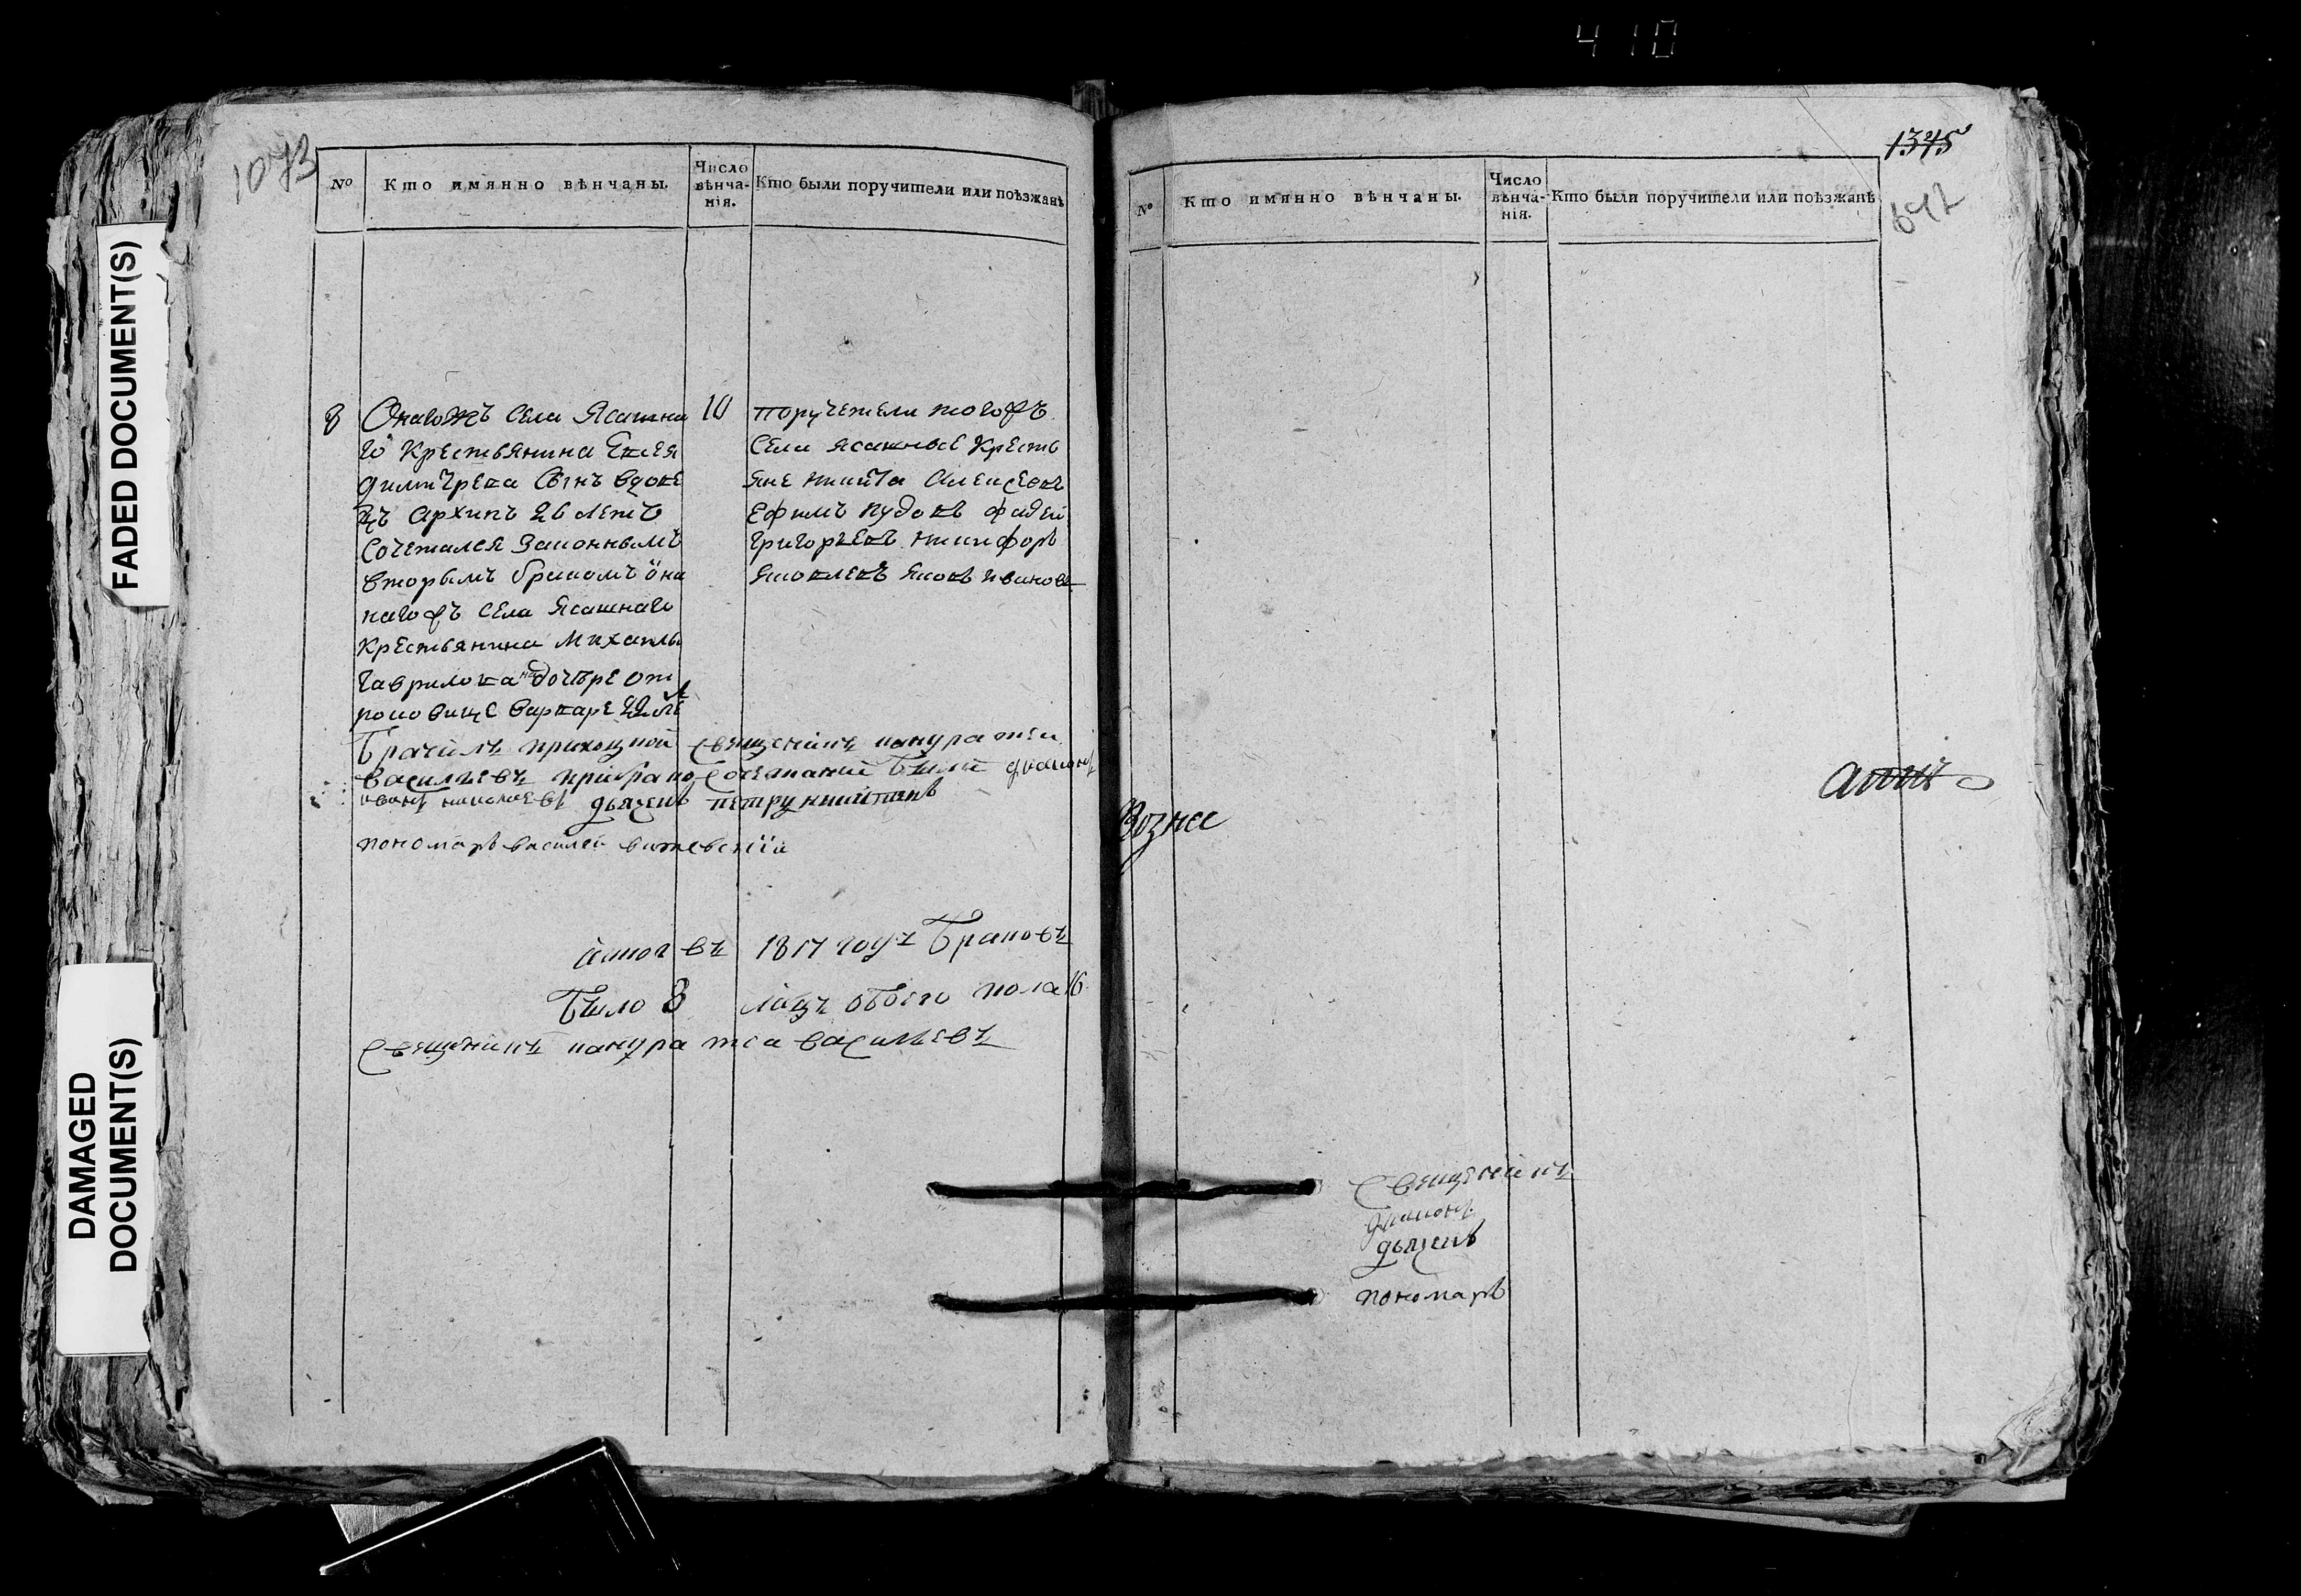 410
1073
№ Кто имянно вѣнчаны. Число вѣнча-нія. Кто были поручители или поѣзжанѣ
8 Онагожъ села Ясашна 10
го крестьянина Евсея
димитрева сынъ вдове
цъ архипъ 26 летъ
сочетался законнымъ
вторымъ бракомъ
нагожъ села Ясашнаго
крестьянина михаилы
гаврилова дочьре от
роковице варваре 22 ле
поручетели тогожъ
села ясашные кресть
яне никита алексеевъ
ефимъ пудовъ фадей
григорьевъ никифоръ
яковлевъ яковъ ивановъ
Бračилъ приходной священникъ панкратей
васильевъ при бракосочетании были диаконъ
иванъ николаевъ дьячекъ петръ никитинъ
пономарь василей витевский
итого въ 1817 году Браковъ
Было 8 лицъ обоего пола 16
священникъ панкратеи васильевъ
1345
642
№ Кто имянно вѣнчаны. Число вѣнча-нія. Кто были поручители или поѣзжанѣ
Вознес
священникъ
диаконъ
дьячекъ
пономарь
FADED DOCUMENT(S)
DAMAGED
DOCUMENT(S)